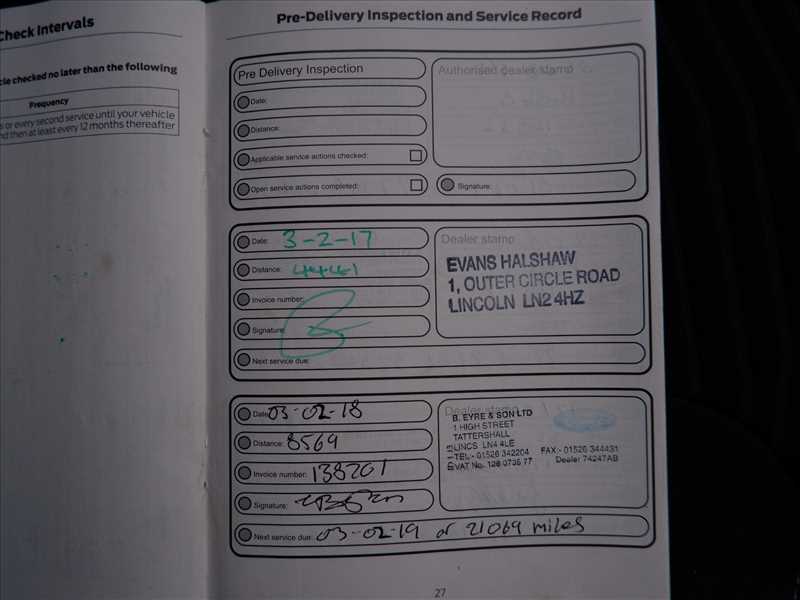 Check Intervals
cle checked no later than the following
Frequency
s or every second service until your vehicle
nd then at least every 12 months thereafter
Pre-Delivery Inspection and Service Record
Pre Delivery Inspection
Authorised dealer stamp
Date:
Distance:
Applicable service actions checked:
Open service actions completed:
Signature:
Date: 3-2-17
Dealer stamp
Distance: 4461
EVANS HALSHAW
1, OUTER CIRCLE ROAD
LINCOLN LN2 4HZ
Invoice number:
Signature:
Next service due:
Date: 03-02-18
Dealer stamp
B. EYRE & SON LTD
1 HIGH STREET
TATTERSHALL
LINCS LN4 4LE
TEL - 01526 342204 FAX:- 01526 344431
VAT No. 128 0735 77 Dealer 74247AB
Distance: 8569
Invoice number: 138201
Signature:
Next service due: 03-02-19 or 21069 miles
27